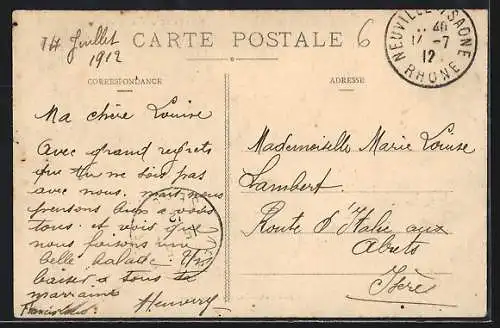 14 Juillet
1912
CARTE POSTALE
6
NEUVILLE-S-SAONE
17 -7
12
RHONE
CORRESPONDANCE
ADRESSE
Ma chère Louise
Avec grand regrets
que tu ne sois pas
avec nous. mais nous
pensons à vous
tous. et vois que
nous faisons une
belle balade.
baiser à tous ta
marraine
Mademoiselle Marie Louise
Lambert
Route d'Italie aux
Abrets
Isère